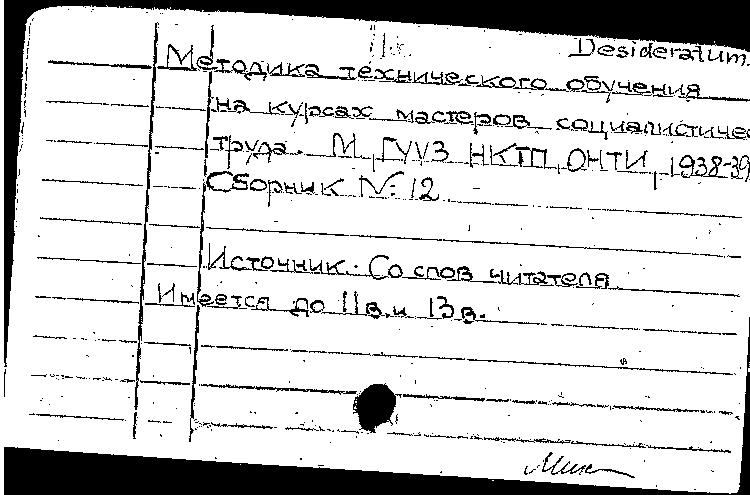 Desideratum
Методика технического обучения
на курсах мастеров социалистичес
труда. М, ГУУЗ НКТП, ОНТИ, 1938-39
Сборник №12
Источник: Со слов читателя
Имеется до 11в. и 13в.